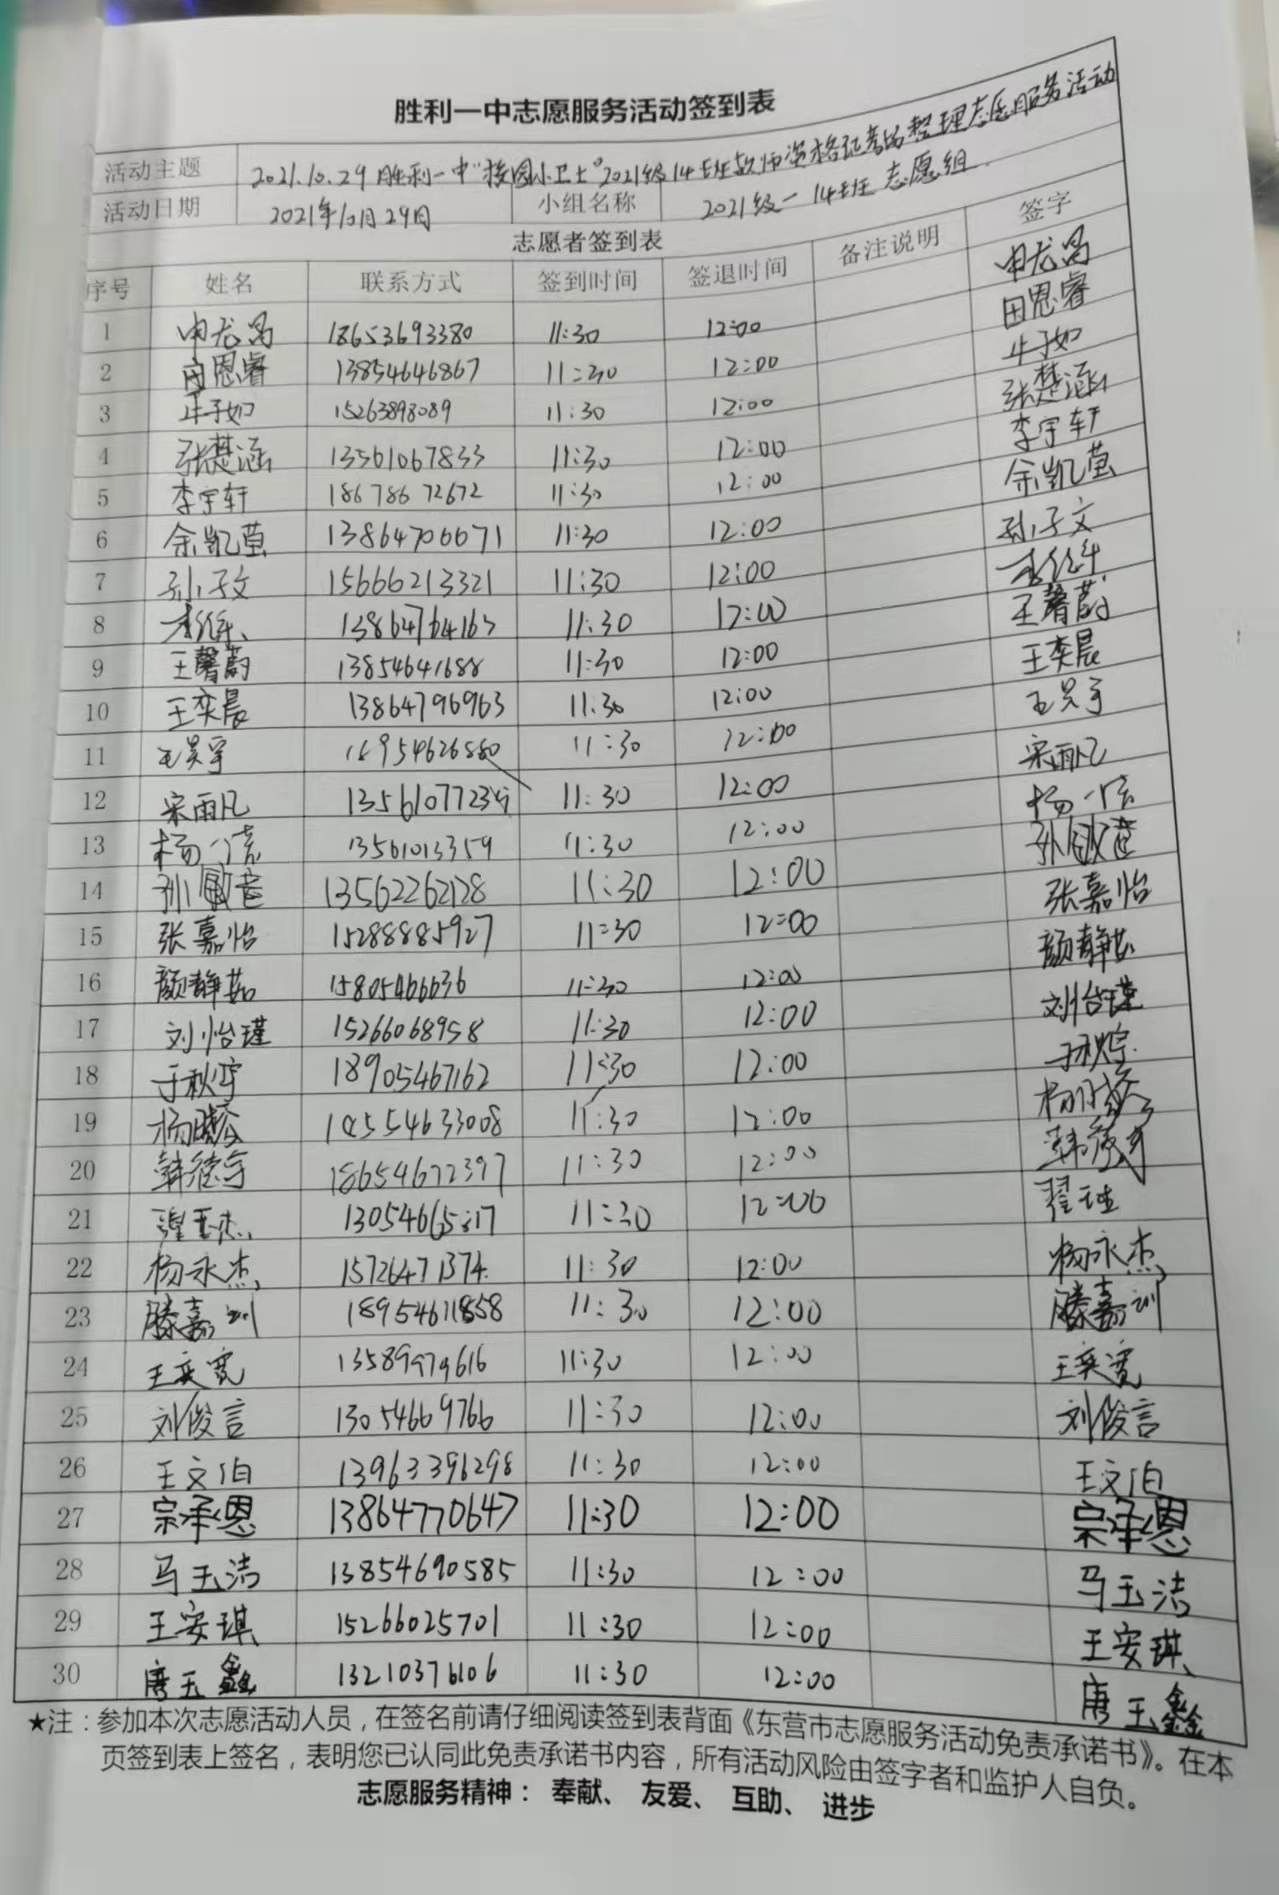 胜利一中志愿服务活动签到表
活动主题 2021.10.29胜利一中"校园小卫士"2021级14班教师资格证考场整理志愿服务活动
活动日期 2021年10月29日 小组名称 2021级-14班 志愿组
志愿者签到表
序号 姓名 联系方式 签到时间 签退时间 备注说明 签字
1 申龙昌 18653693380 11:30 12:00 申龙昌
2 田恩睿 13854646867 11:30 12:00 田恩睿
3 牛子如 15263898089 11:30 12:00 牛子如
4 张楚涵 13561067833 11:30 12:00 张楚涵
5 李宇轩 18678672672 11:30 12:00 李宇轩
6 余凯萤 13864706671 11:30 12:00 余凯萤
7 孙子文 15666213321 11:30 12:00 孙子文
8 13864764163 11:30 12:00
9 王馨蔚 13854641688 11:30 12:00 王馨蔚
10 王奕晨 13864796963 11:30 12:00 王奕晨
11 王昊宇 18954626880 11:30 12:00 王昊宇
12 宋雨凡 11:30 12:00 宋雨凡
13 13561013359 11:30 12:00
14 13562262128 11:30 12:00
15 张嘉怡 15288885927 11:30 12:00 张嘉怡
16 颜静茹 15805466636 11:30 12:00 颜静茹
17 刘怡瑾 15266068958 11:30 12:00 刘怡瑾
18 于秋宁 18905467162 11:30 12:00 于秋宁
19 11:30 12:00
20 18654672397 11:30 12:00
21 11:30 12:00
22 杨永杰 15726471374 11:30 12:00 杨永杰
23 滕嘉训 18954611858 11:30 12:00 滕嘉训
24 王奕宽 13589979616 11:30 12:00 王奕宽
25 刘俊言 13054669766 11:30 12:00 刘俊言
26 王文伯 13963396298 11:30 12:00 王文伯
27 宗承恩 13864770647 11:30 12:00 宗承恩
28 马玉洁 13854690585 11:30 12:00 马玉洁
29 王安琪 15266025701 11:30 12:00 王安琪
30 唐玉鑫 13210376106 11:30 12:00 唐玉鑫
★注：参加本次志愿活动人员，在签名前请仔细阅读签到表背面《东营市志愿服务活动免责承诺书》。在本
页签到表上签名，表明您已认同此免责承诺书内容，所有活动风险由签字者和监护人自负。
志愿服务精神： 奉献、 友爱、 互助、 进步